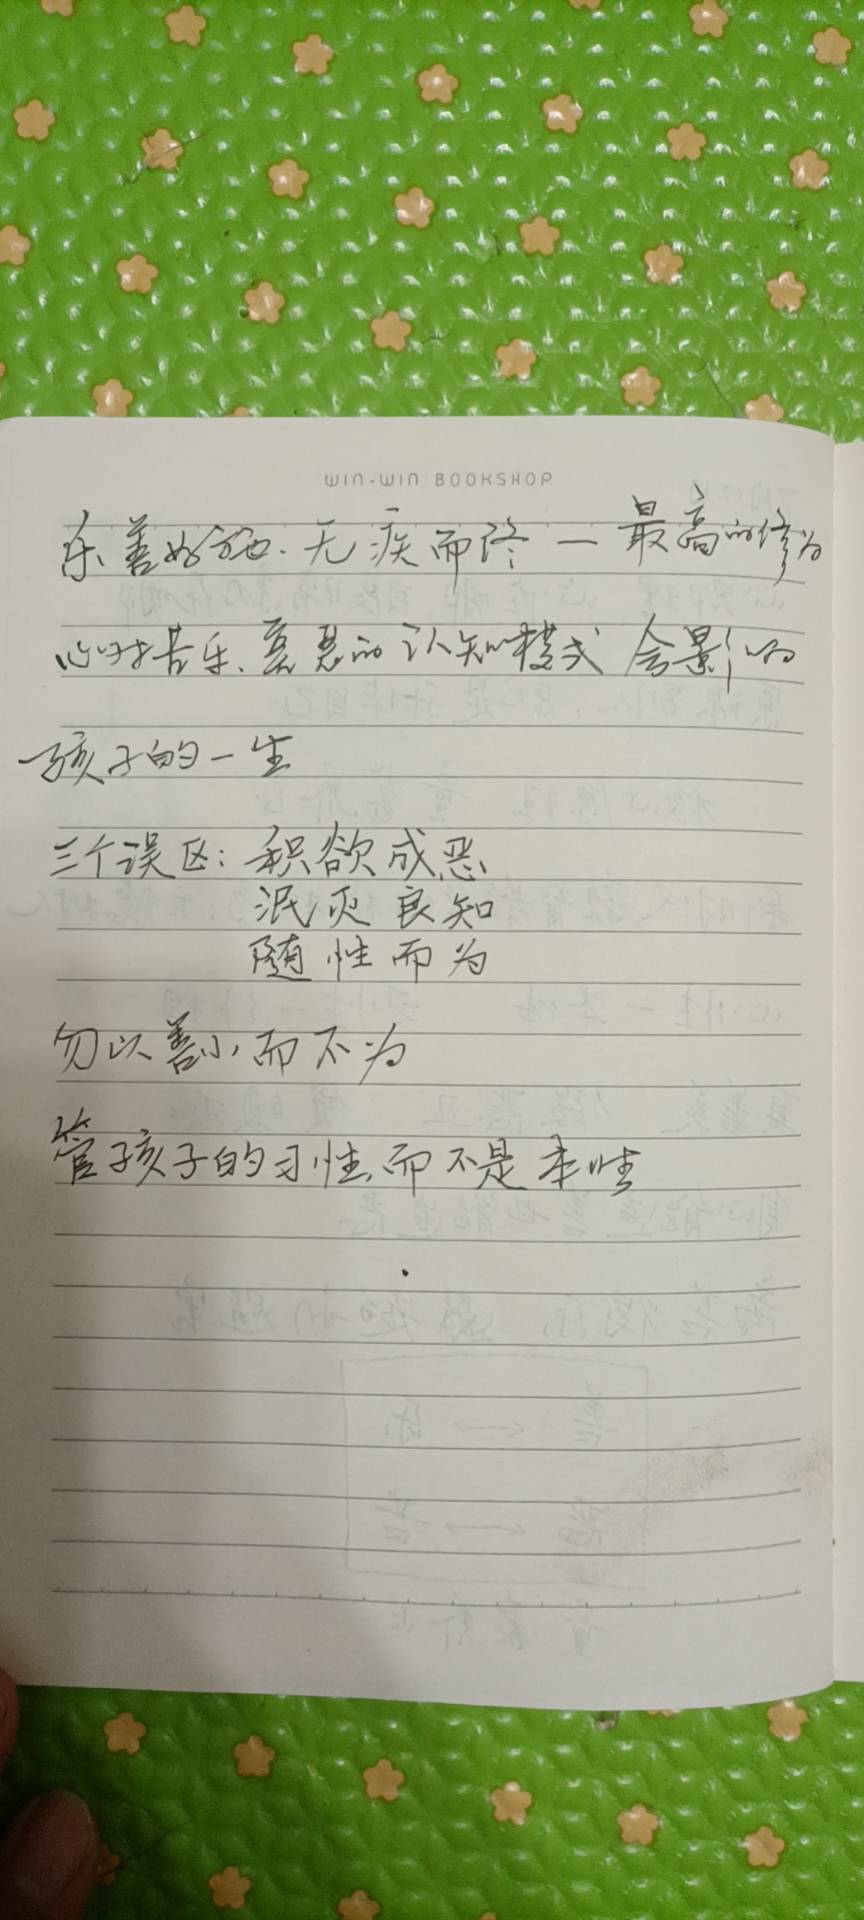 WIN-WIN BOOKSHOP
乐善好施.无疾而终一最高的修为
心对苦乐.的认知模式会影响
孩子的一生
三个误区:积欲成恶
泯灭良知
随性而为
勿以善小而不为
管孩子的习性,而不是本性